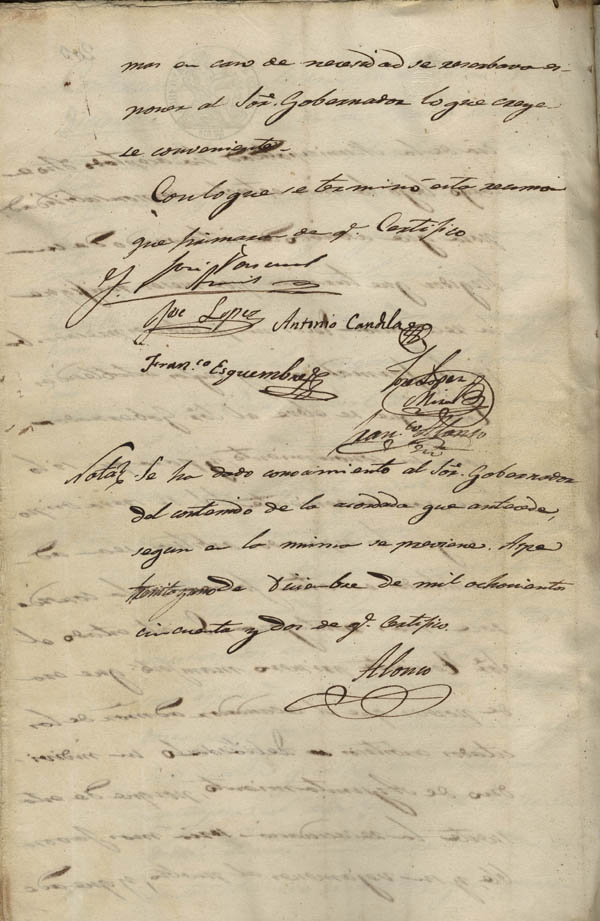 mas en caso de necesidad se reserbava es-
poner al Sor. Gobernador lo que creye-
se conveniente.
Con lo que se terminó esta reunion
que firmaran de qe. Certifico
José Pascual
Jose Lopez
Antonio Candela
Franco. Esquembre
Jose Lopez
Miral
Franco. Alonso
Nota Se ha dado conocimiento al Sor. Gobernador
del contenido de la acordada que antecede,
segun en la misma se previene. Aspe
treinta y uno de Diciembre de mil ochocientos
cincuenta y dos de qe. Certifico.
Alonso